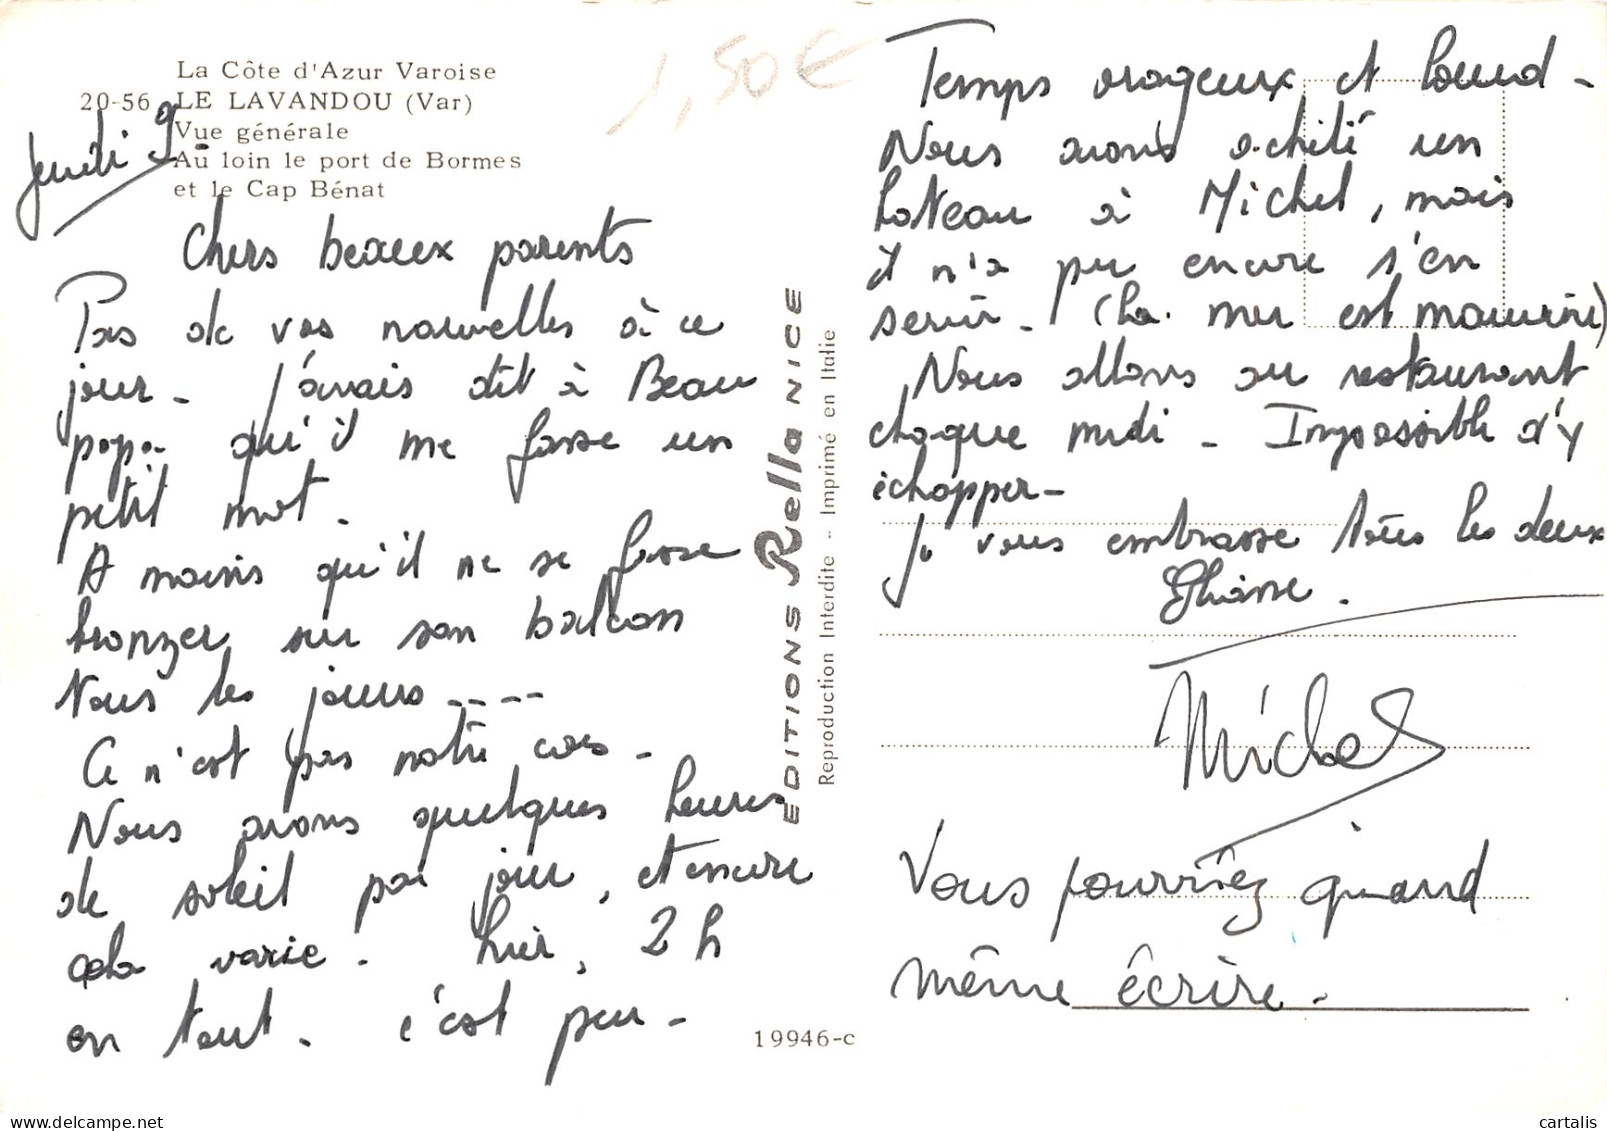 La Côte d'Azur Varoise
20-56 LE LAVANDOU (Var)
Vue générale
Au loin le port de Bormes
et le Cap Bénat
1,50€
Jeudi 9
Chers beaux parents
Pas de vos nouvelles à ce
jour - J'avais dit à Beau
papa qu'il me fasse un
petit mot.
A moins qu'il ne se fasse
bronzer sur son balcon
tous les jours ----
Ce n'est pas notre cas -
Nous avons quelques heures
de soleil par jour, et encore
cela varie. hier, 2 h
en tout. c'est peu -
EDITIONS Rella NICE
Reproduction Interdite - Imprimé en Italie
19946-c
Temps orageux et lourd -
Nous avons acheté un
bateau à Michel, mais
il n'a pu encore s'en
servir - (la mer est mauvaise)
Nous allons au restaurant
chaque midi - Impossible d'y
échapper -
Je vous embrasse tous les deux
Michel
Vous pourriez quand
même écrire -
cartalis